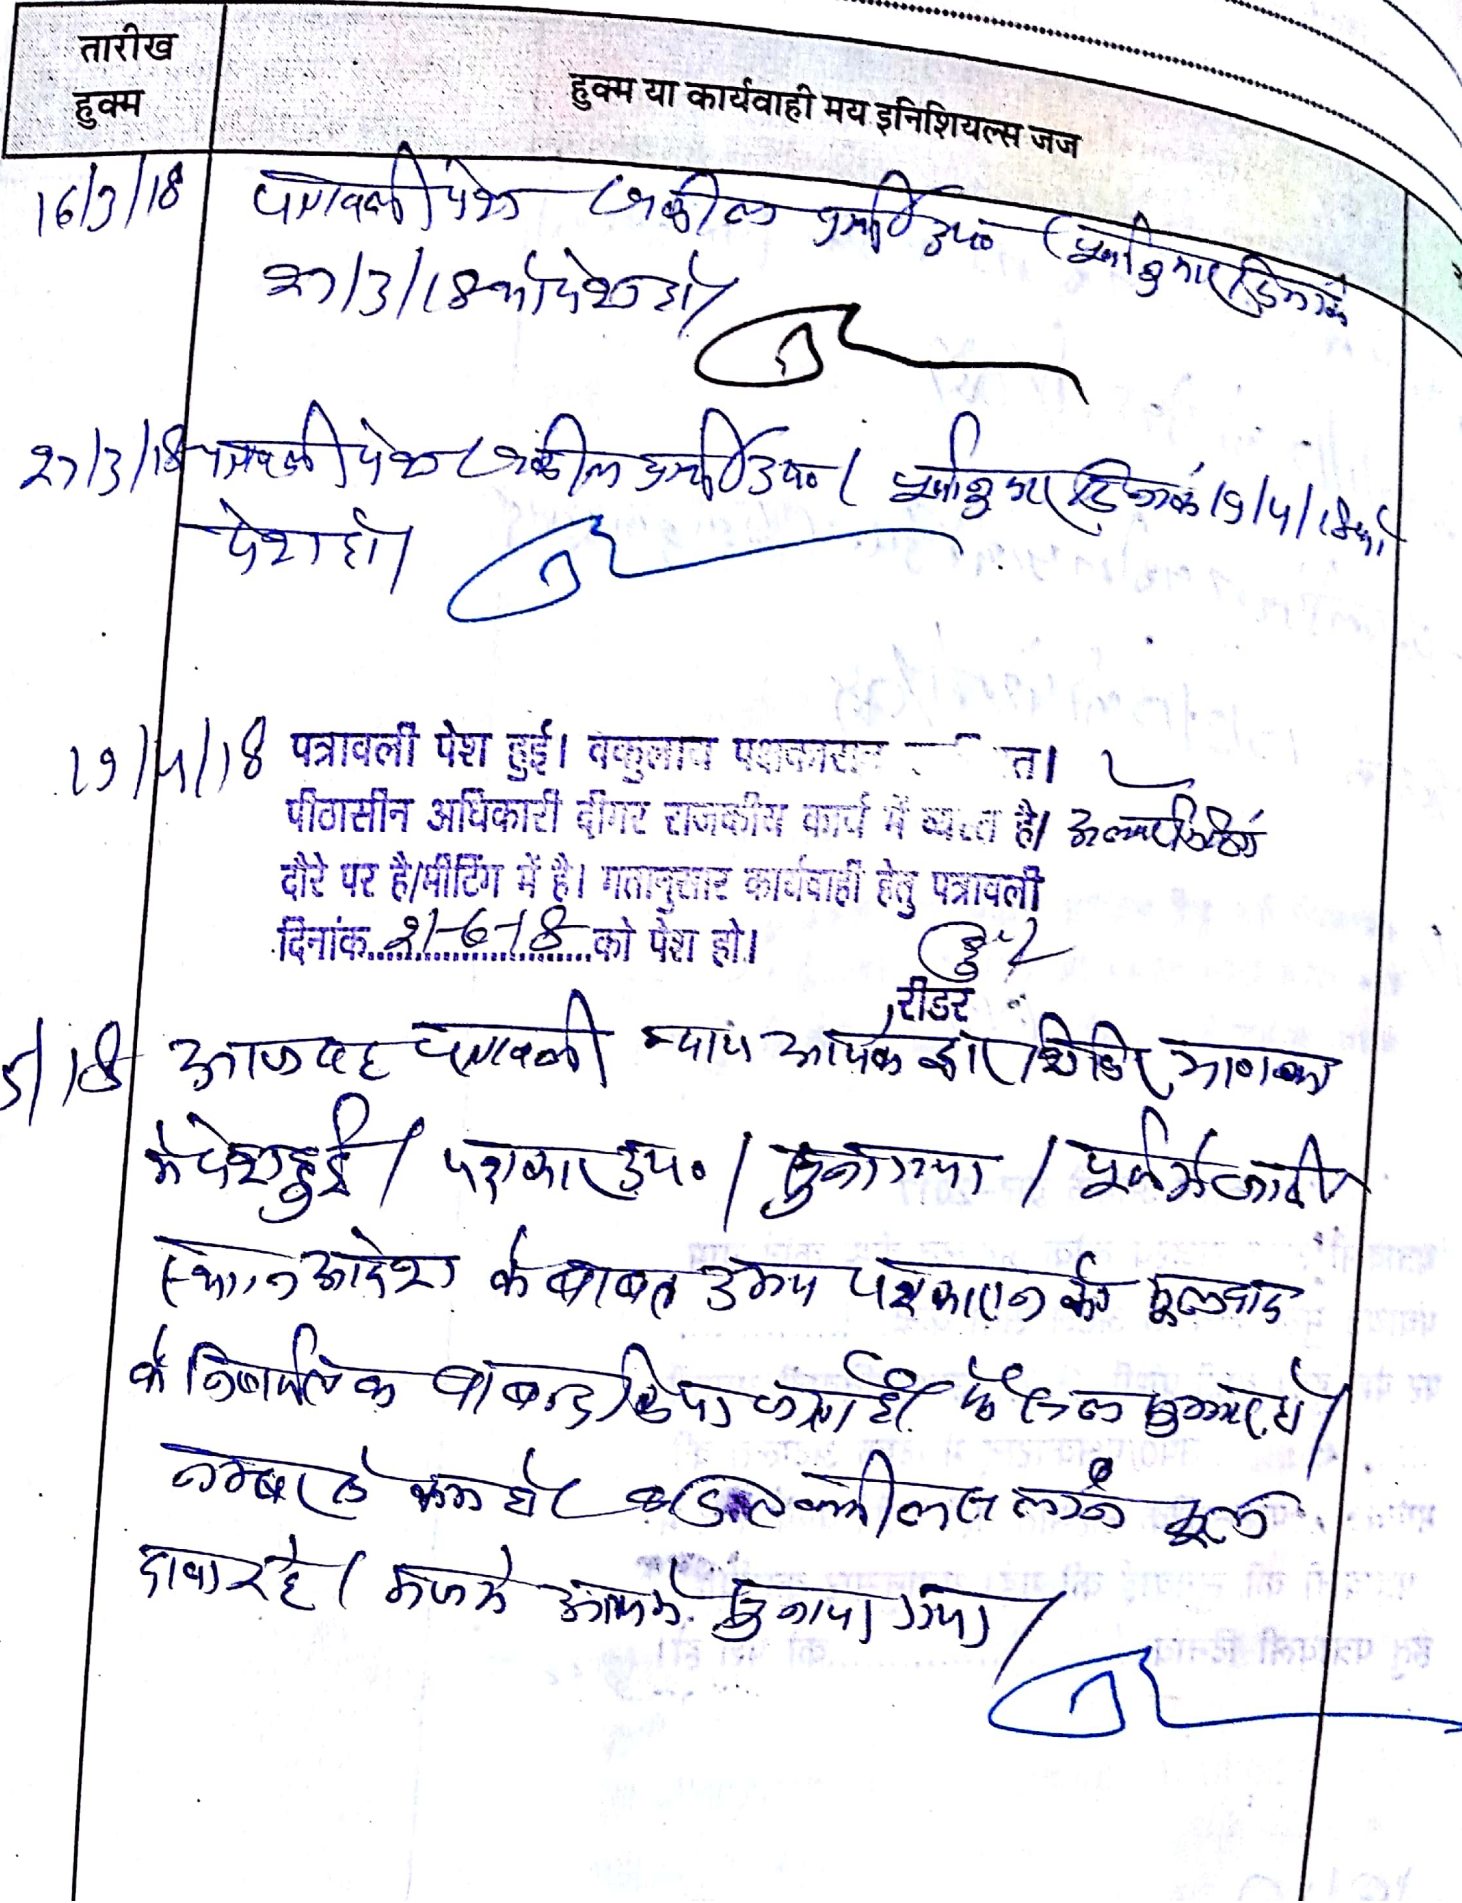 तारीख
हुक्म
हुक्म या कार्यवाही मय इनिशियल्स जज
16/3/18 पत्रावली पेश। वकील प्रार्थी उप०। पूर्वानुसार दिनांक
27/3/18 को पेश हो।
27/3/18 पत्रावली पेश। वकील प्रार्थी उप०। पूर्वानुसार दिनांक 19/4/18 को
पेश हो।
19/4/18 पत्रावली पेश हुई। वकुलाय पक्षकारान त।
पीठासीन अधिकारी दीगर राजकीय कार्य में व्यस्त है।
दौरे पर है/मीटिंग में है। गतानुसार कार्यवाही हेतु पत्रावली
दिनांक 21-6-18 को पेश हो।
रीडर
5/18 आज यह पत्रावली न्याय आपके द्वार शिविर
में पेश हुई। पक्षकार उप०। सुना गया। पूर्व में जारी
स्थगन आदेश के बाबत उभय पक्षकारान को मूलवाद
के निर्णय तक पाबन्द किया जाता है। फैसल शुमार हो।
नम्बर से कम हो। मूल
दावा रहे। सुनाया गया।